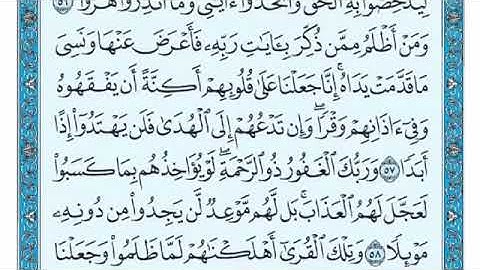 لِيُدْحِضُوا۟ بِهِ ٱلْحَقَّ وَٱتَّخَذُوٓا۟ ءَايَـٰتِى وَمَآ أُنذِرُوا۟ هُزُوًا ٥٦
وَمَنْ أَظْلَمُ مِمَّن ذُكِّرَ بِـَٔايَـٰتِ رَبِّهِۦ فَأَعْرَضَ عَنْهَا وَنَسِىَ
مَا قَدَّمَتْ يَدَاهُ ۚ إِنَّا جَعَلْنَا عَلَىٰ قُلُوبِهِمْ أَكِنَّةً أَن يَفْقَهُوهُ
وَفِىٓ ءَاذَانِهِمْ وَقْرًا ۖ وَإِن تَدْعُهُمْ إِلَى ٱلْهُدَىٰ فَلَن يَهْتَدُوٓا۟ إِذًا
أَبَدًا ٥٧ وَرَبُّكَ ٱلْغَفُورُ ذُو ٱلرَّحْمَةِ ۖ لَوْ يُؤَاخِذُهُم بِمَا كَسَبُوا۟
لَعَجَّلَ لَهُمُ ٱلْعَذَابَ ۚ بَل لَّهُم مَّوْعِدٌ لَّن يَجِدُوا۟ مِن دُونِهِۦ
مَوْئِلًا ٥٨ وَتِلْكَ ٱلْقُرَىٰٓ أَهْلَكْنَـٰهُمْ لَمَّا ظَلَمُوا۟ وَجَعَلْنَا